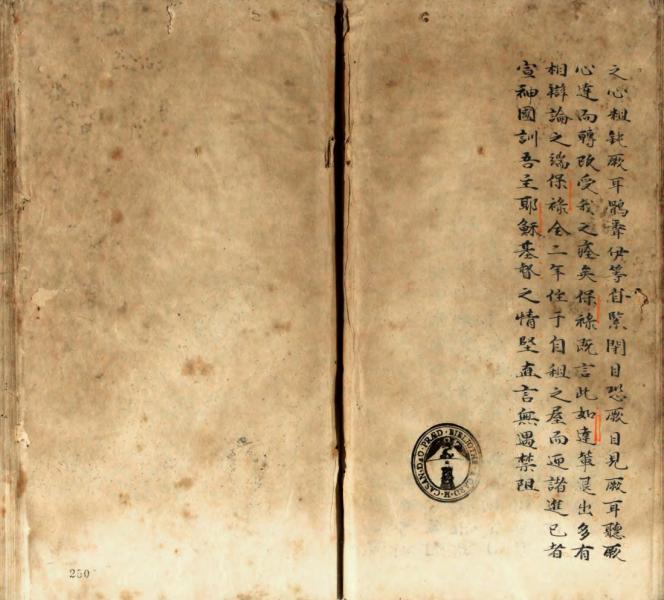 之心粗鈍厥耳伊等自緊閉目恐厥目見厥耳聽厥
心達而轉改受我之痊矣保祿既言此如達輩退出多有
相辯論之端保祿全二年住于自租之屋而迎諸進已者
宣神國訓吾主耶穌基督之情堅直言無遇禁阻
250